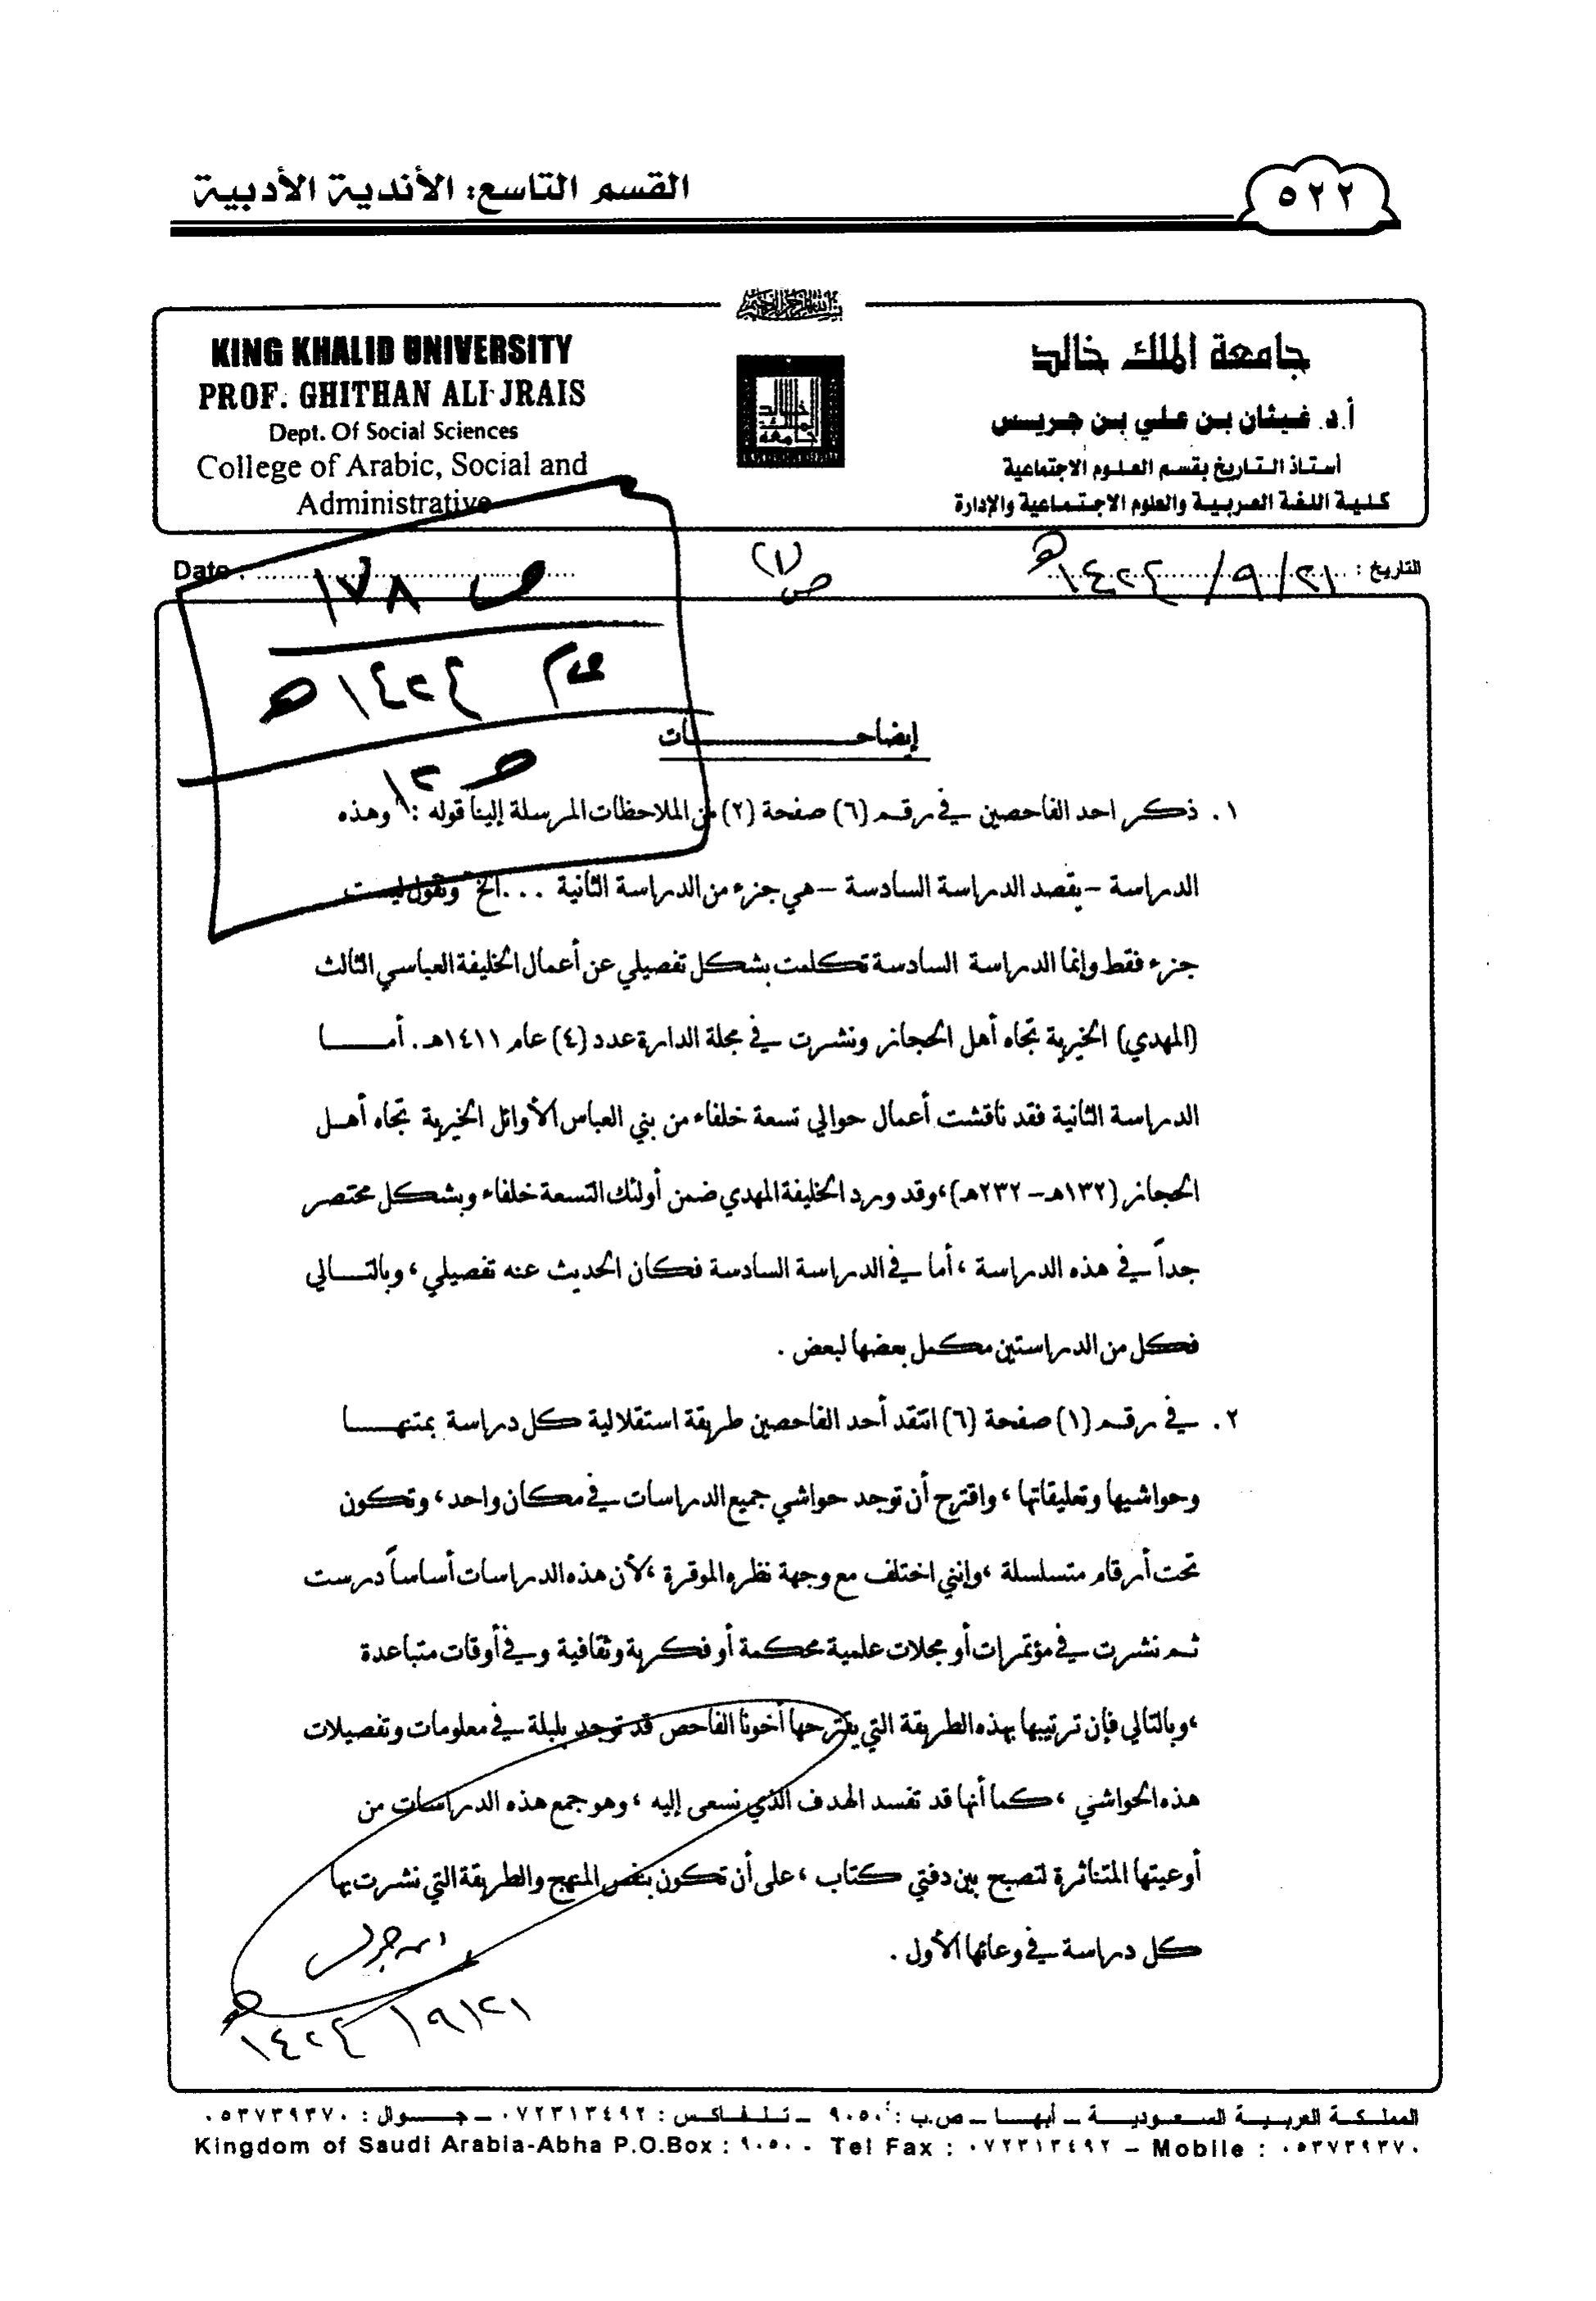 القسم التاسع: الأندية الأدبية
٥٢٢
بسم الله الرحمن الرحيم
KING KHALID UNIVERSITY
PROF. GHITHAN ALI JRAIS
Dept. Of Social Sciences
College of Arabic, Social and
Administrative
جامعة الملك خالد
أ.د. غيثان بن علي بن جريس
أستاذ التاريخ بقسم العلوم الاجتماعية
كلية اللغة العربية والعلوم الاجتماعية والإدارة
التاريخ : ٢١/٩/١٤٢٤هـ
ص(١)
Date :
ص ١٧٨
١٤٢٤هـ
ص ١٢
إيضاحــــات
١. ذكر احد الفاحصين في رقم (٦) صفحة (٢) من الملاحظات المرسلة إلينا قوله : " وهذه
الدراسة – يقصد الدراسة السادسة – هي جزء من الدراسة الثانية ... الخ " ونقول ليست
جزء فقط وإنما الدراسة السادسة تكلمت بشكل تفصيلي عن أعمال الخليفة العباسي الثالث
(المهدي) الخيرية تجاه أهل الحجاز ونشرت في مجلة الدارة عدد (٤) عام ١٤١١هـ. أمــا
الدراسة الثانية فقد ناقشت أعمال حوالي تسعة خلفاء من بني العباس الأوائل الخيرية تجاه أهـل
الحجاز (١٣٢هـ – ٢٣٢هـ)، وقد ورد الخليفة المهدي ضمن أولئك التسعة خلفاء وبشكل مختصر
جداً في هذه الدراسة ، أما في الدراسة السادسة فكان الحديث عنه تفصيلي ، وبالتــالي
فكل من الدراستين مكمل بعضها لبعض .
٢. في رقم (١) صفحة (٦) انتقد أحد الفاحصين طريقة استقلالية كل دراسة بمتنهــا
وحواشيها وتعليقاتها ، واقترح أن توجد حواشي جميع الدراسات في مكان واحد ، وتكون
تحت أرقام متسلسلة ، وإنني اختلف مع وجهة نظره الموقرة ، لأن هذه الدراسات أساساً درست
ثم نشرت في مؤتمرات أو مجلات علمية محكمة أو فكرية وثقافية وفي أوقات متباعدة
، وبالتالي فإن ترتيبها بهذه الطريقة التي يقترحها أخونا الفاحص قد توجد بلبلة في معلومات وتفصيلات
هذه الحواشي ، كما أنها قد تفسد الهدف الذي نسعى إليه ، وهو جمع هذه الدراسات من
أوعيتها المتناثرة لتصبح بين دفتي كتاب ، على أن تكون بنفس المنهج والطريقة التي نشرت بها
كل دراسة في وعائها الأول .
ابن جريس
٢١/٩/١٤٢٤هـ
المملكة العربية السعودية – أبها – ص.ب : ٩٠٥٠ – تلفاكس : ٠٧٢٣١٣٤٩٢ – جــوال : ٠٥٣٧٣٩٣٧٠
Kingdom of Saudi Arabia-Abha P.O.Box : ٩٠٥٠ - Tel Fax : ٠٧٢٣١٣٤٩٢ – Mobile : ٠٥٣٧٣٩٣٧٠